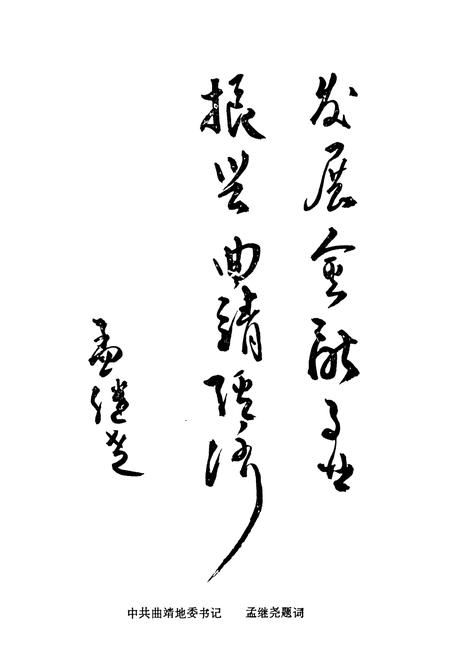 发展金融事业
振兴曲靖经济
孟继尧
中共曲靖地委书记 孟继尧题词